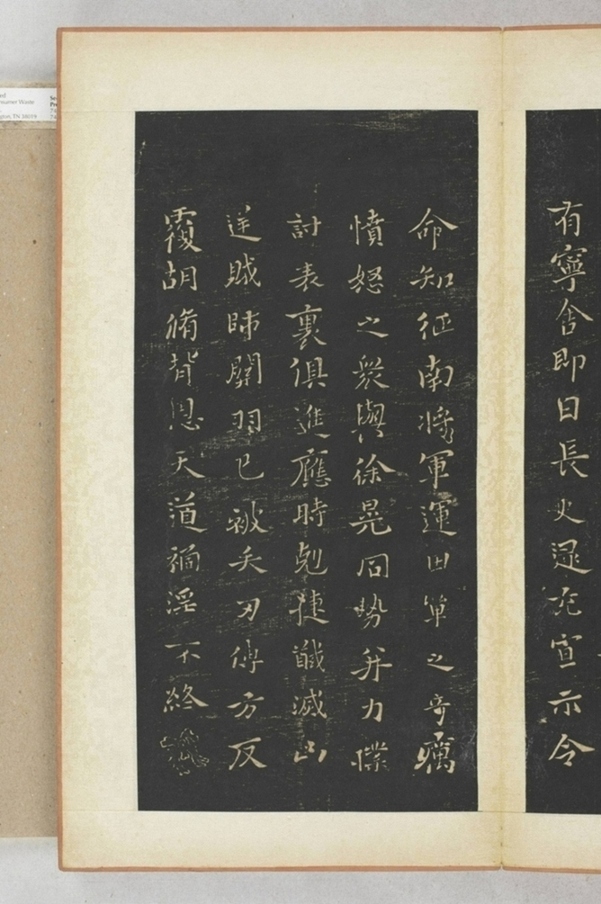 有寧舍即日長史逯充宣示令
命知征南將軍運田單之奇厲
憤怒之眾與徐晃同勢并力㩧
討表裏俱進應時剋捷馘滅凶
逆賊帥關羽已被矢刃傅方反
覆胡脩背恩天道禍淫不終